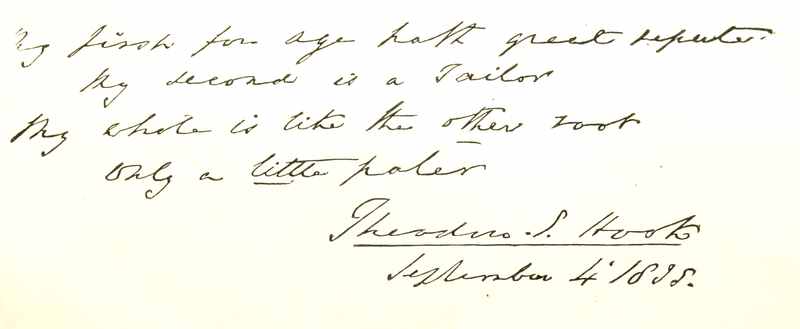 My first for age hath great repute
My second is a Tailor
My whole is like the other root
Only a little paler
Theodore E. Hook
September 4' 1835.